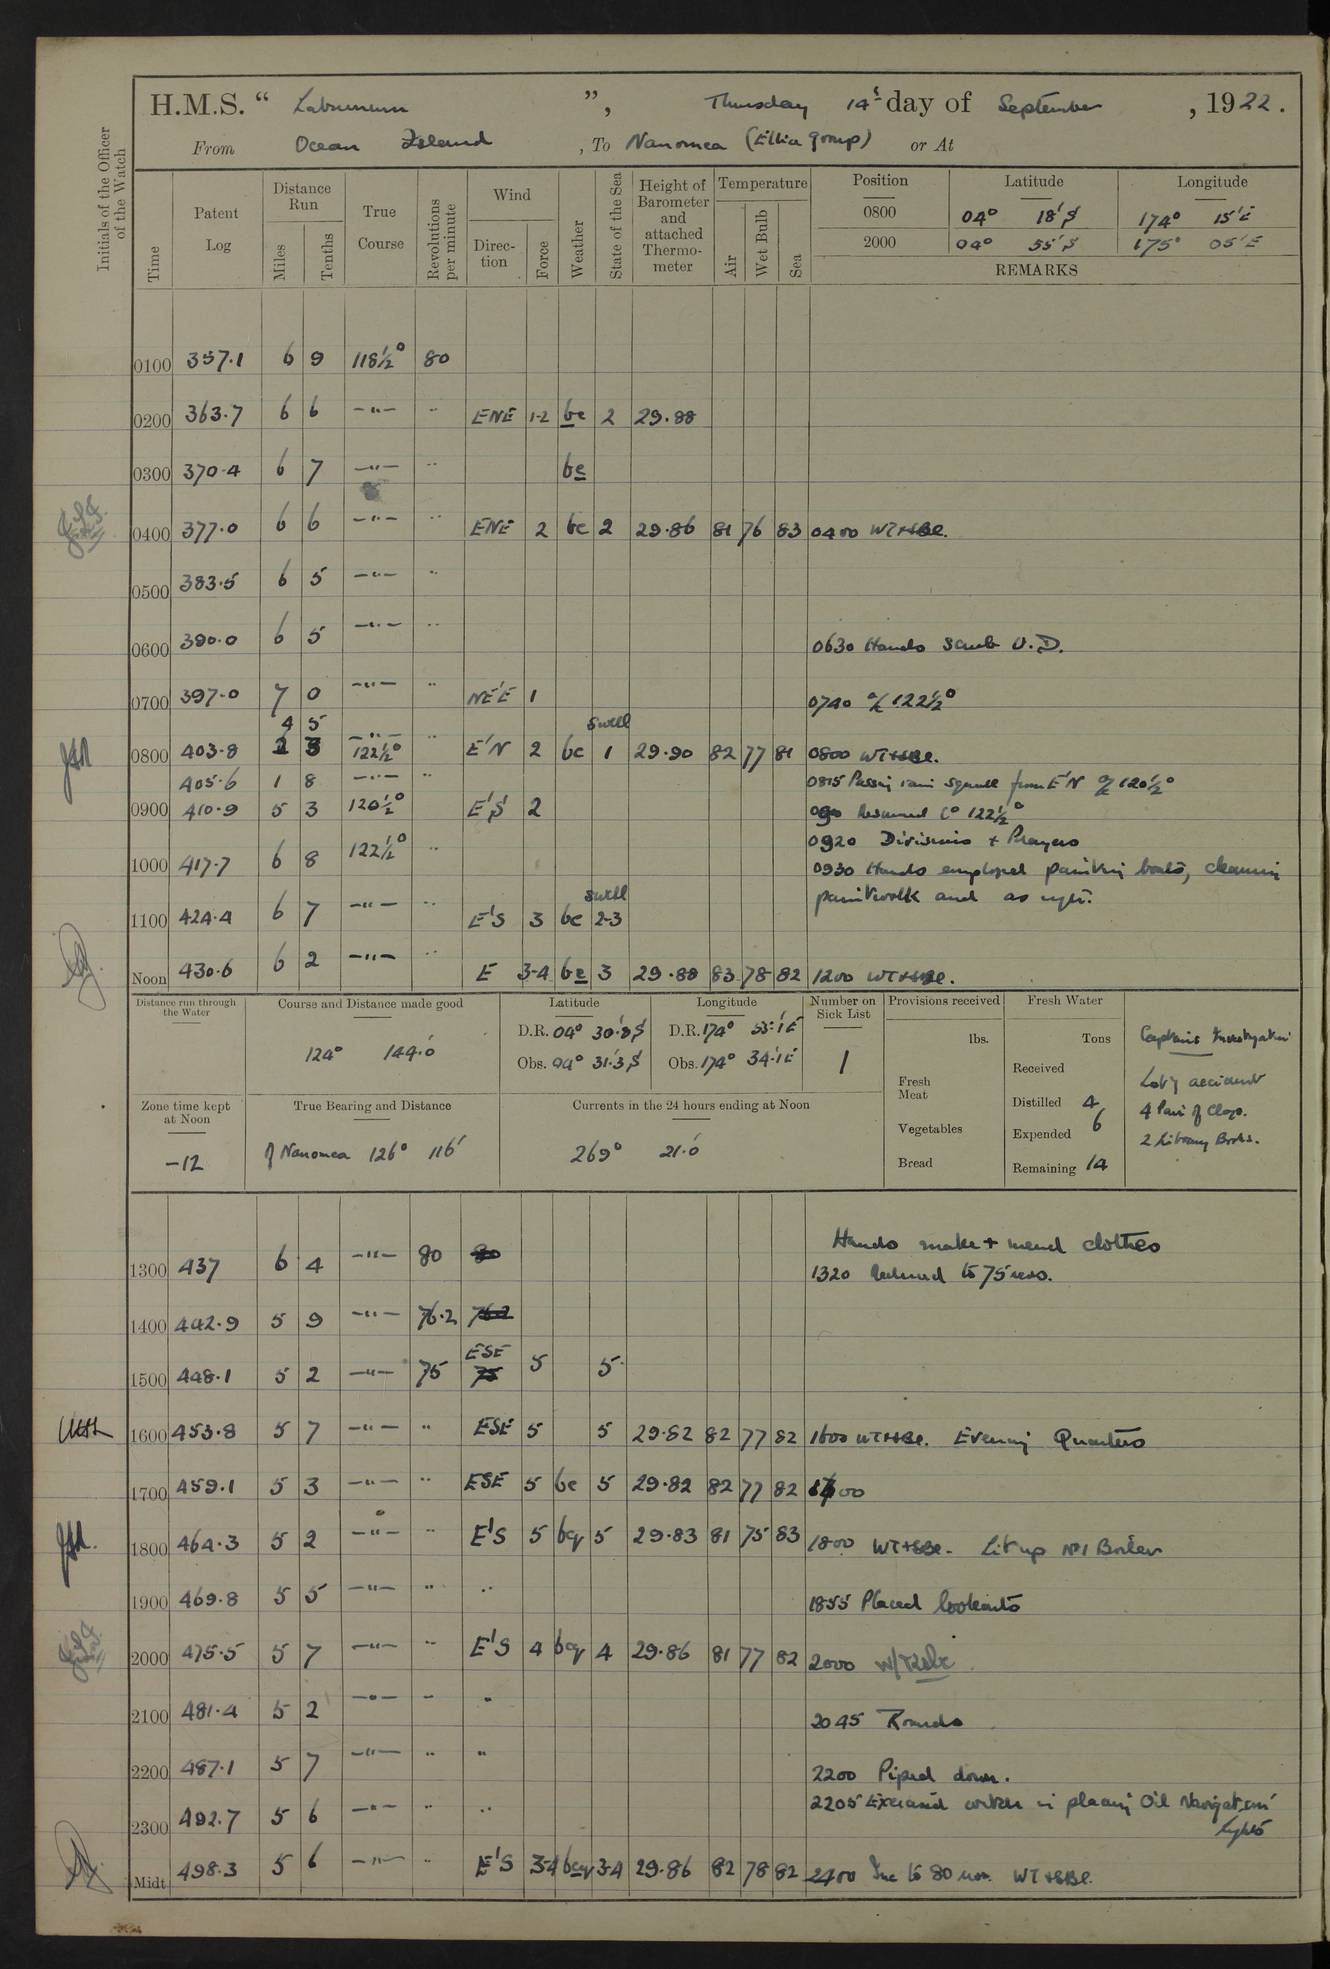 H.M.S. " Laburnum ", Thursday 14th day of September, 1922.
From Ocean Island, To Nanomea (Ellice Group) or At
Initials of the Officer of the Watch
Time Patent Log Distance Run Miles Tenths True Course Revolutions per minute Wind Direction Force Weather State of the Sea Height of Barometer and attached Thermometer Temperature Air Wet Bulb Sea Position Latitude Longitude
0800 04° 18' S 174° 15' E
2000 04° 55' S 175° 05' E
REMARKS
0100 357.1 6 9 118½° 80
0200 363.7 6 6 —"— " ENE 1-2 bc 2 29.88
0300 370.4 6 7 —"— " bc
0400 377.0 6 6 —"— " ENE 2 bc 2 29.86 81 76 83 0400 WT+SBE.
0500 383.5 6 5 —"— "
0600 390.0 6 5 —"— " 0630 Hands scrub U.D.
0700 397.0 7 0 —"— " NE'E 1 0740 a/c 122½°
4 5 —"— swell
0800 403.8 2 3 122½° " E'N 2 bc 1 29.90 82 77 81 0800 WT+SBE.
405.6 1 8 —"— " 0815 Passing rain squall from E'N a/c 120½°
0900 410.9 5 3 120½° E'S 2 0900 Resumed Co 122½°
0920 Divisions + Prayers
1000 417.7 6 8 122½° " 0930 Hands employed painting boats, cleaning
swell paintwork and as reqte.
1100 424.4 6 7 —"— " E'S 3 bc 2-3
Noon 430.6 6 2 —"— " E 3-4 bc 3 29.88 83 78 82 1200 WT+SBE.
Distance run through the Water Course and Distance made good Latitude Longitude Number on Sick List Provisions received Fresh Water
124° 144.0'
D.R. 04° 30.8' S D.R. 174° 55.1' E
Obs. 04° 31.3' S Obs. 174° 34.1' E
1
lbs. Tons
Fresh Meat
Vegetables
Bread
Received
Distilled 4
Expended 6
Remaining 14
Captains Investigation
Lost by accident
4 Pair of Clogs.
2 Library Books.
Zone time kept at Noon True Bearing and Distance Currents in the 24 hours ending at Noon
-12 of Nanomea 126° 116' 269° 21.0'
Hands make + mend clothes
1300 437 6 4 —"— 80 80 1320 Reduced to 75 revs.
1400 442.9 5 9 —"— 76.2 76.2
ESE
1500 448.1 5 2 —"— 75 75 5 5
1600 453.8 5 7 —"— " ESE 5 5 29.82 82 77 82 1600 WT+SBE. Evening Quarters
1700 459.1 5 3 —"— " ESE 5 bc 5 29.82 82 77 82 1700
1800 464.3 5 2 —"— " E'S 5 bcq 5 29.83 81 75 83 1800 WT+SBE. Lit up No 1 Boiler
1900 469.8 5 5 —"— " " 1855 Placed lookouts
2000 475.5 5 7 —"— " E'S 4 bcq 4 29.86 81 77 82 2000 WT&SBE
2100 481.4 5 2 —"— " " 2045 Rounds
2200 487.1 5 7 —"— " " 2200 Piped down.
2205 Exercised watch in placing Oil Navigation
2300 492.7 5 6 —"— " " lights
Midt 498.3 5 6 —"— " E'S 3-4 bcq 3-4 29.86 82 78 82 2400 Inc to 80 revs. WT+SBE.